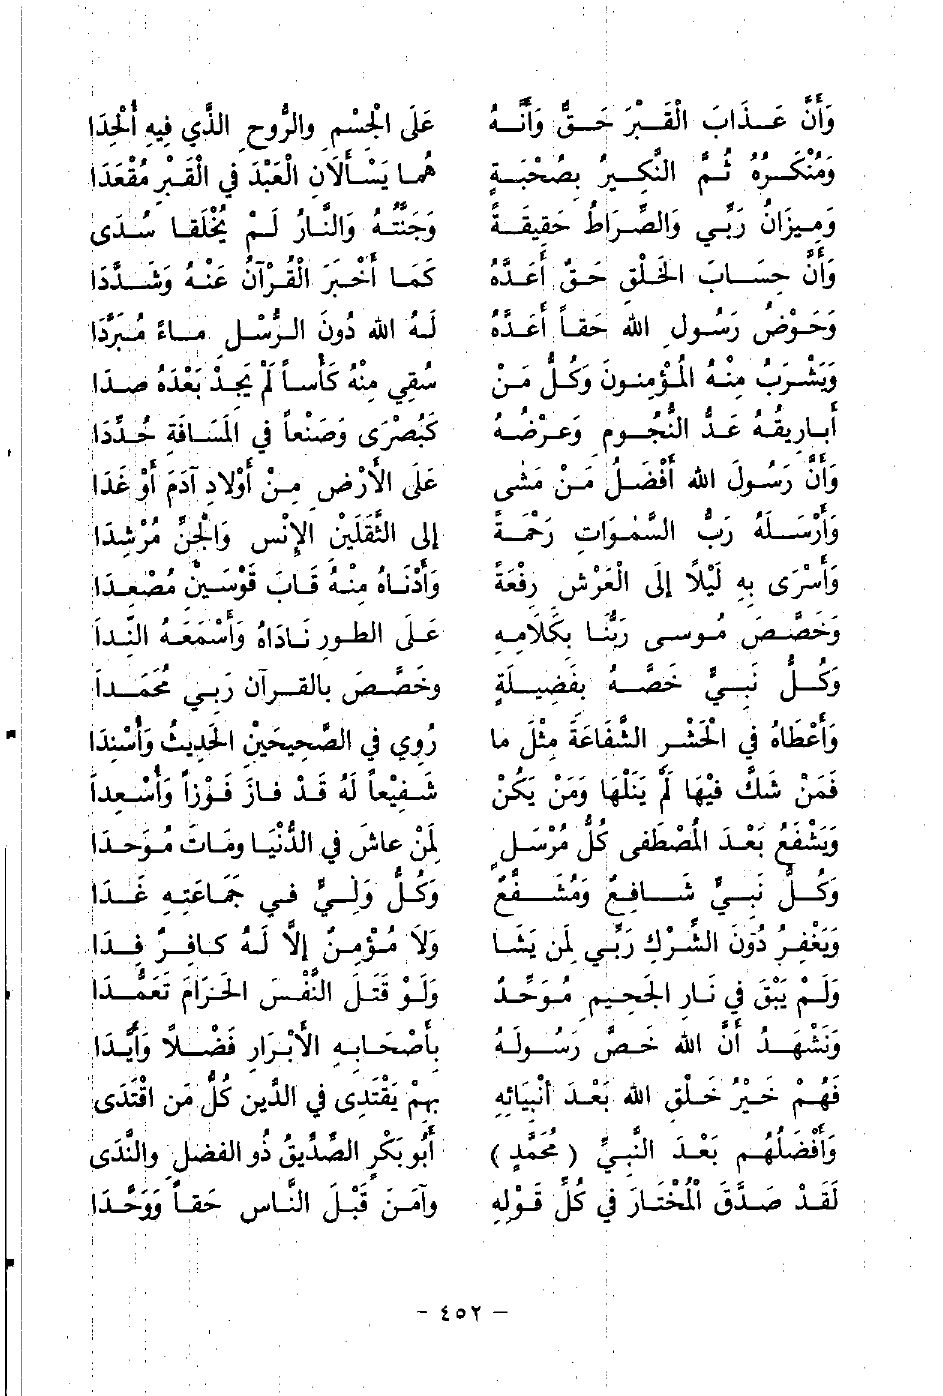 وَأَنَّ عَذَابَ الْقَبْرَ حَقٌّ وَأَنَّهُ عَلَى الْجِسْمِ والرُّوحِ الذَّي فِيهِ أُلْحِدَا
وَمُنْكَرُهُ ثُمَّ النَّكِيرُ بِصُحْبَةٍ هُما يَسْأَلَانِ الْعَبْدَ في الْقَبْرِ مُقْعَدَا
وَمِيزَانُ رَبِّي وَالصِّرَاطُ حَقِيقَةً وَجَنَّتُهُ وَالنَّارُ لَمْ يُخْلَقا سُدَى
وَأَنَّ حِسَابَ الخَلْقِ حَقٌّ أَعَدَّهُ كَمَا أَخْبَرَ الْقُرْآنُ عَنْهُ وَشَدَّدَا
وَحَوْضُ رَسُولِ الله حَقاً أَعَدَّهُ لَهُ الله دُونَ الرُّسْلِ ماءً مُبَرَّدَا
وَيَشْرَبُ مِنْهُ الْمُؤْمِنونَ وَكُلُّ مَنْ سُقِي مِنْهُ كَأْساً لَمْ يَجِدْ بَعْدَهُ صدَا
أَبارِيقُهُ عَدُّ النُّجُومِ وَعرْضُهُ كَبُصْرَى وَصَنْعاً في الْمَسَافَةِ حُدِّدَا
وَأَنَّ رَسُولَ الله أَفْضَلُ مَنْ مَشى عَلَى الْأَرْضِ مِنْ أَوْلادِ آدَمَ أَوْ غَدَا
وَأَرْسَلَهُ رَبُّ السَّمَوَاتِ رَحْمَةً إلى الثَّقَلَيْنِ الإِنْسِ وَالْجِنِّ مُرْشِدَا
وَأَسْرَى بِهِ لَيْلاً إلَى الْعَرْشِ رِفْعَةً وَأَدْنَاهُ مِنْهُ قَابَ قَوْسَيْنِ مُصْعِدَا
وَخَصَّصَ مُوسى رَبُّنَا بِكَلَامِهِ عَلَى الطور نَادَاهُ وَأَسْمَعَهُ النِّدَا
وَكُلُّ نَبِيٍّ خَصَّهُ بِفَضِيلَةٍ وخَصَّصَ بالقرآن رَبي مُحَمَدا
وَأَعْطَاهُ في الْحَشْرِ الشَّفَاعَةَ مِثْلَ ما رُوِي في الصَّحِيحَيْنِ الْحَدِيثُ وَأُسْنِدَا
فَمَنْ شَكَّ فيهَا لَمْ يَنَلْهَا وَمَنْ يَكُنْ شَفِيعاً لَهُ قَدْ فازَ فَوْزاً وَأُسْعِدا
وَيَشْفَعُ بَعْدَ الْمُصْطَفى كُلُّ مُرْسَلٍ لِمَنْ عاشَ في الدُّنْيَا ومَاتَ مُوَحِدا
وَكُلُّ نَبيٍّ شَافِعٌ وَمُشَفَّعٌ وَكُلُّ وَلِيٍّ في جَمَاعَتِهِ غَدا
وَيَغْفِرُ دُونَ الشِّرْكِ رَبِّي لمن يَشَا وَلاَ مُؤْمِنٌ إلَّا لَهُ كافِرٌ فِدا
وَلَمْ يَبْقَ في نَارِ الجَحِيمِ مُوَحِّدٌ وَلَوْ قَتَلَ النَّفْسَ الحَرَامَ تَعَمُّدَا
وَنَشْهَدُ أَنَّ الله خَصَّ رَسُولَهُ بِأَصْحَابِهِ الأَبْرَارِ فَضْلاً وَأَيَّدَا
فَهُمْ خَيْرُ خَلْقِ الله بَعْدَ أَنْبِيَائِهِ بِهِمْ يَقْتَدِى في الدِّينِ كُلُّ مَنِ اقْتَدَى
وَأَفْضَلُهُم بَعْدَ النَّبِيِّ ( مُحَمَّدٍ ) أَبُو بَكْرِ الصِّدِّيقُ ذُو الفضلِ والنَّدَى
لَقَدْ صَدَّقَ الْمُخْتَارَ في كُلِّ قَوْلِهِ وآمَنَ قَبْلَ النَّاسِ حَقاً وَوَحَّدَا
- ٤٥٢ -